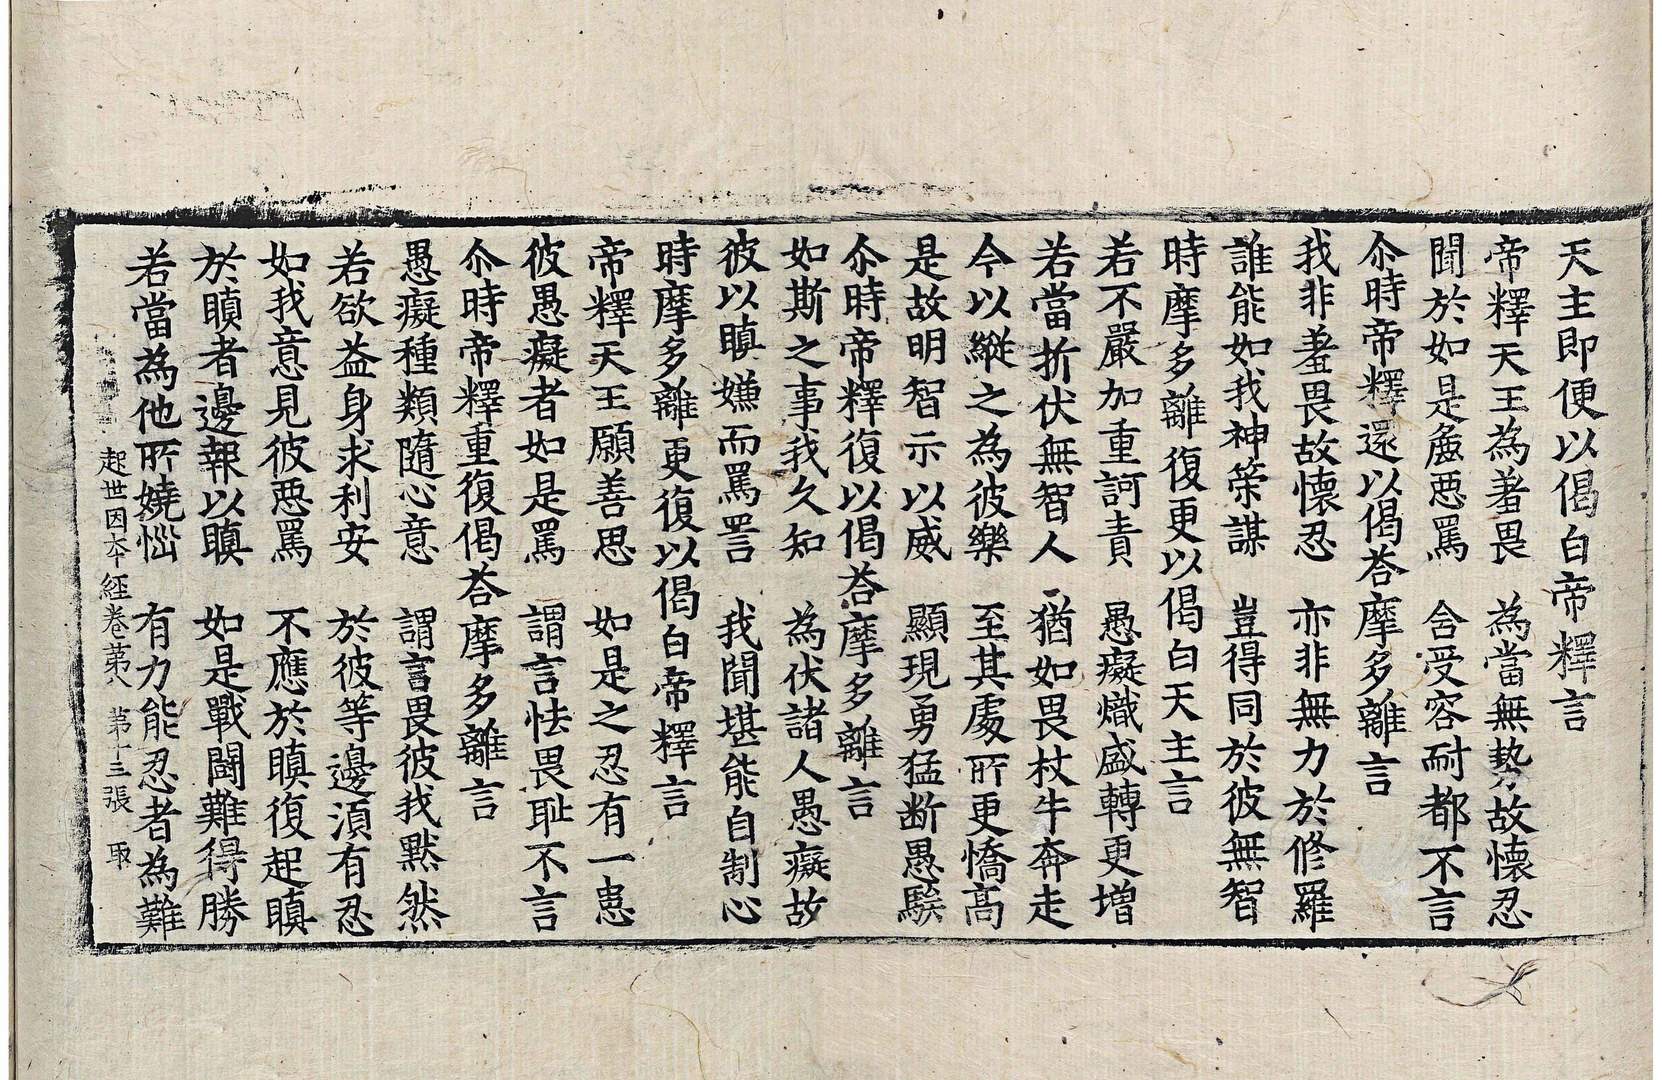 天主即便以偈白帝釋言
帝釋天王為羞畏　為當無勢故懷忍
聞於如是麁惡罵　含受容耐都不言
尒時帝釋還以偈荅摩多離言
我非羞畏故懷忍　亦非無力於修羅
誰能如我神策謀　豈得同於彼無智
時摩多離復更以偈白天主言
若不嚴加重訶責　愚癡熾盛轉更增
若當折伏無智人　猶如畏杖牛奔走
今以縱之為彼樂　至其處所更憍高
是故明智示以威　顯現勇猛断愚騃
尒時帝釋復以偈荅摩多離言
如斯之事我久知　為伏諸人愚癡故
彼以瞋嫌而罵詈　我聞堪能自制心
時摩多離更復以偈白帝釋言
帝釋天王願善思　如是之忍有一患
彼愚癡者如是罵　謂言怯畏耻不言
尒時帝釋重復偈荅摩多離言
愚癡種類隨心意　謂言畏彼我默然
若欲益身求利安　於彼等邊須有忍
如我意見彼惡罵　不應於瞋復起瞋
於瞋者邊報以瞋　如是戰鬪難得勝
若當為他所嬈惱　有力能忍者為難
起世因本經卷第八　第十三張　取